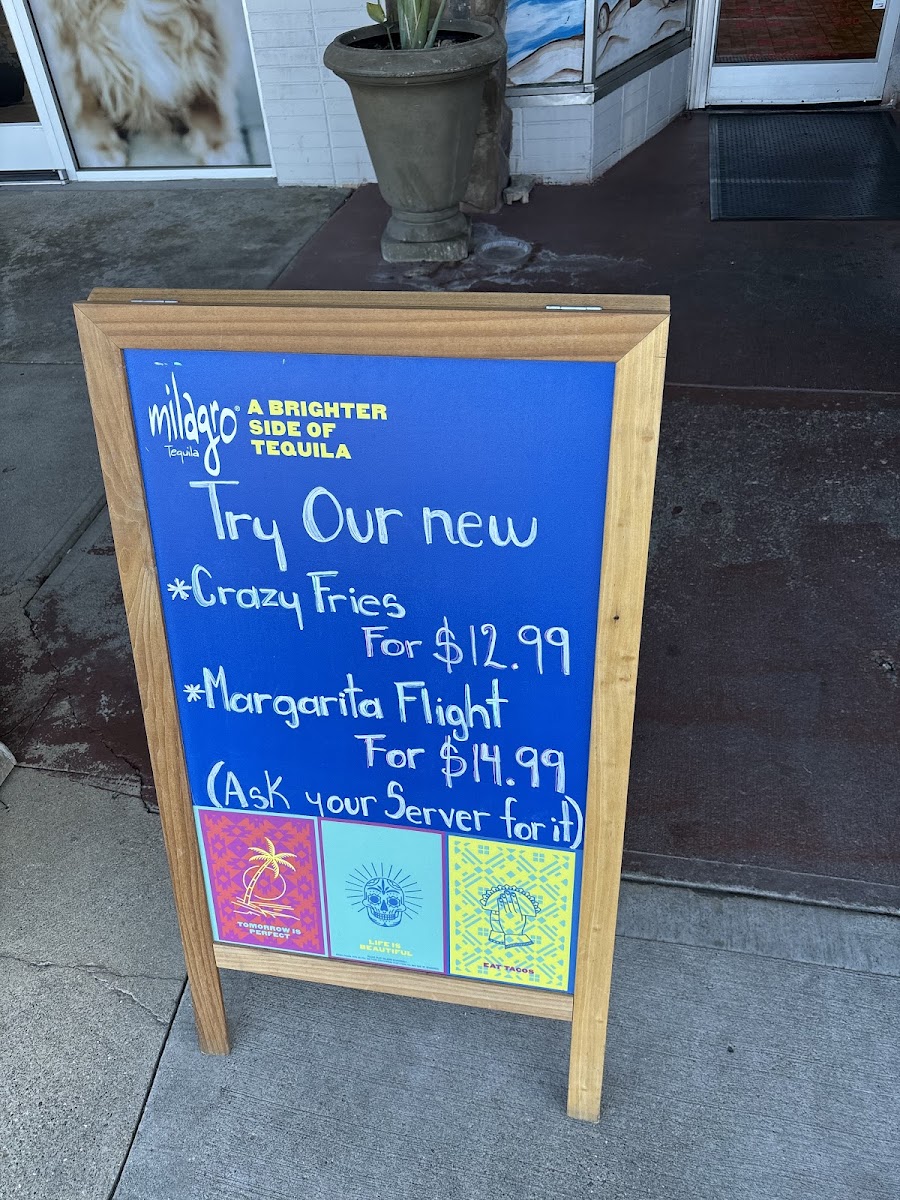 milagro®
Tequila
A BRIGHTER
SIDE OF
TEQUILA
Try Our new
*Crazy Fries
For $12.99
*Margarita Flight
For $14.99
(Ask your Server for it)
TOMORROW IS
PERFECT
LIFE IS
BEAUTIFUL
EAT TACOS